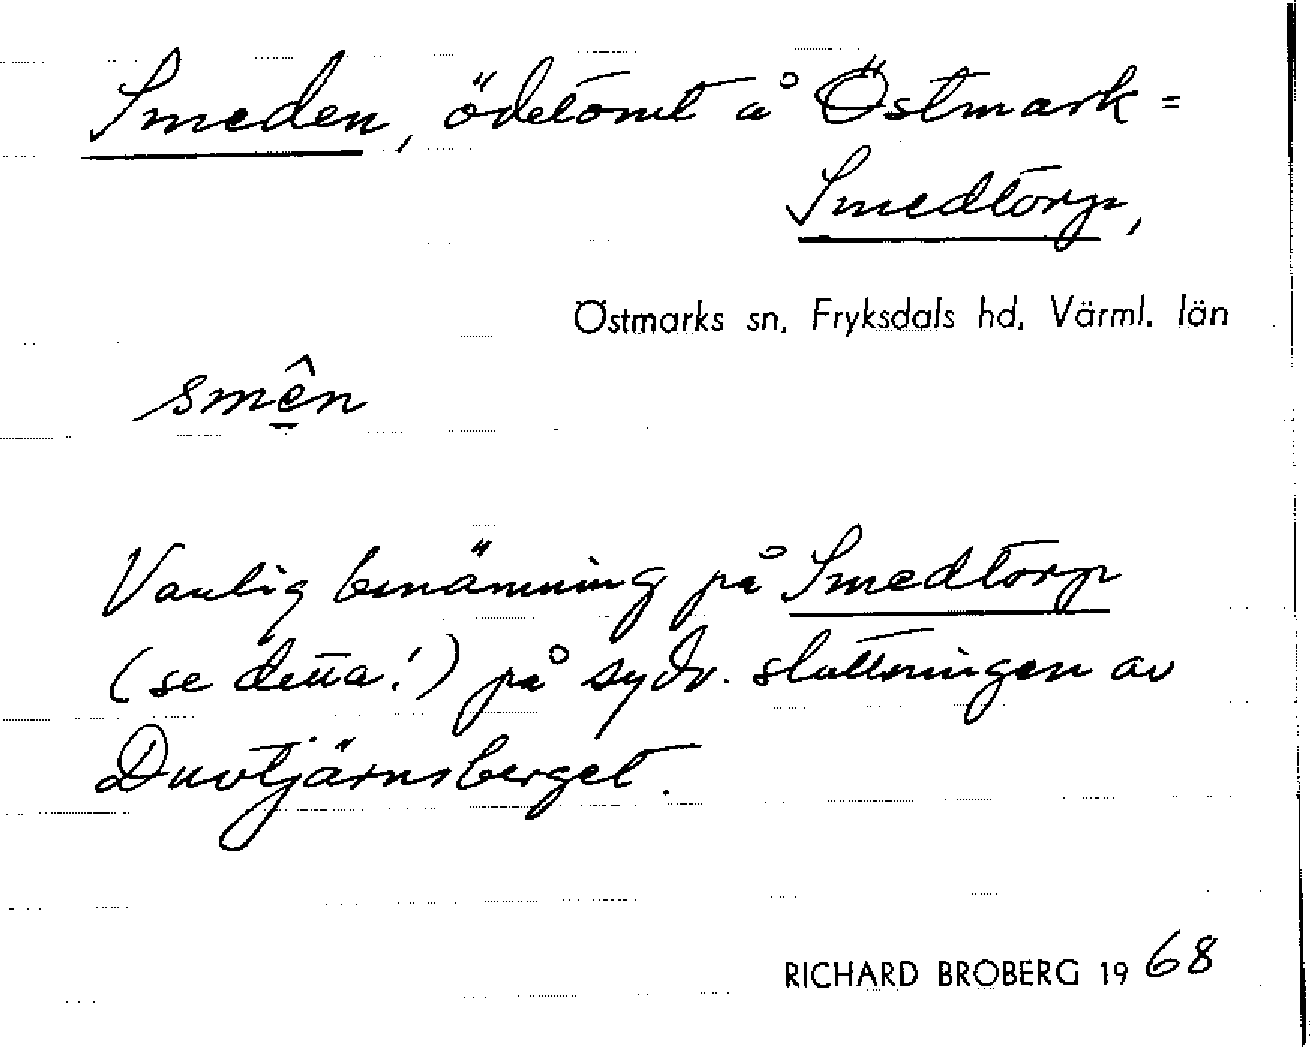 Smeden, ödetomt å Östmark =
Smedtorp,
Östmarks sn, Fryksdals hd, Värml. län
smê̱n
Vanlig benämning på Smedtorp
(se detta!) på sydv. sluttningen av
Duvtjärnsberget.
RICHARD BROBERG 1968